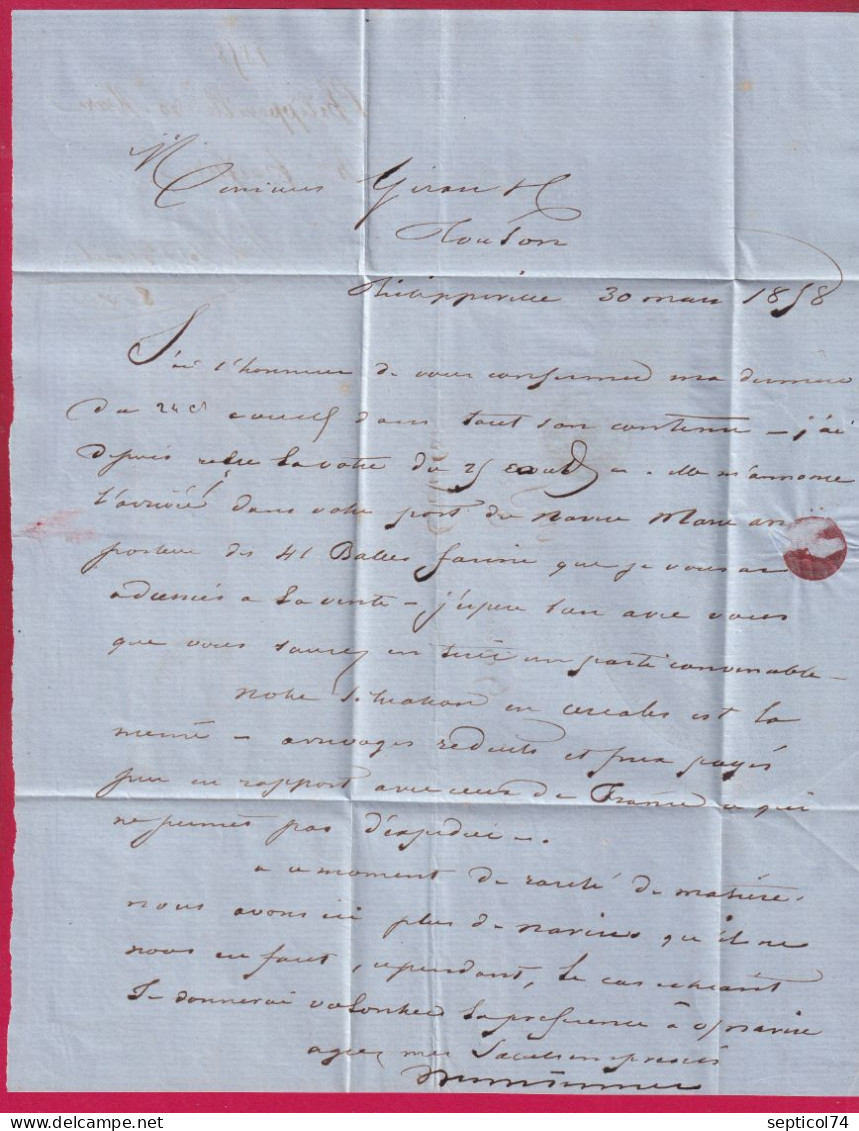 Monsieur Giran & C
Toulon
Philippeville 30 mars 1858
J'ai l'honneur de vous confirmer ma dernière
du 24 ct courrier dans tout son contenu – j'ai
depuis reçu la votre du 25 . Elle m'annonce
l'arrivée dans votre port du navire Marie
porteur des 41 Balles farine que je vous ai
adressés a la vente – j'espère
que vous saurez en tirer un parti convenable –
notre situation en cereales est la
meme – arrivages reduits et prix payés
peu en rapport avec ceux de France ce qui
ne permet pas d'expedier –.
a ce moment de rareté de matière
nous avons ici plus de navires qu'il ne
nous en faut, cependant, le cas echeant
Je donnerai volontiers la preference à v/navire
agreez mes Salutations empressées
septicol74